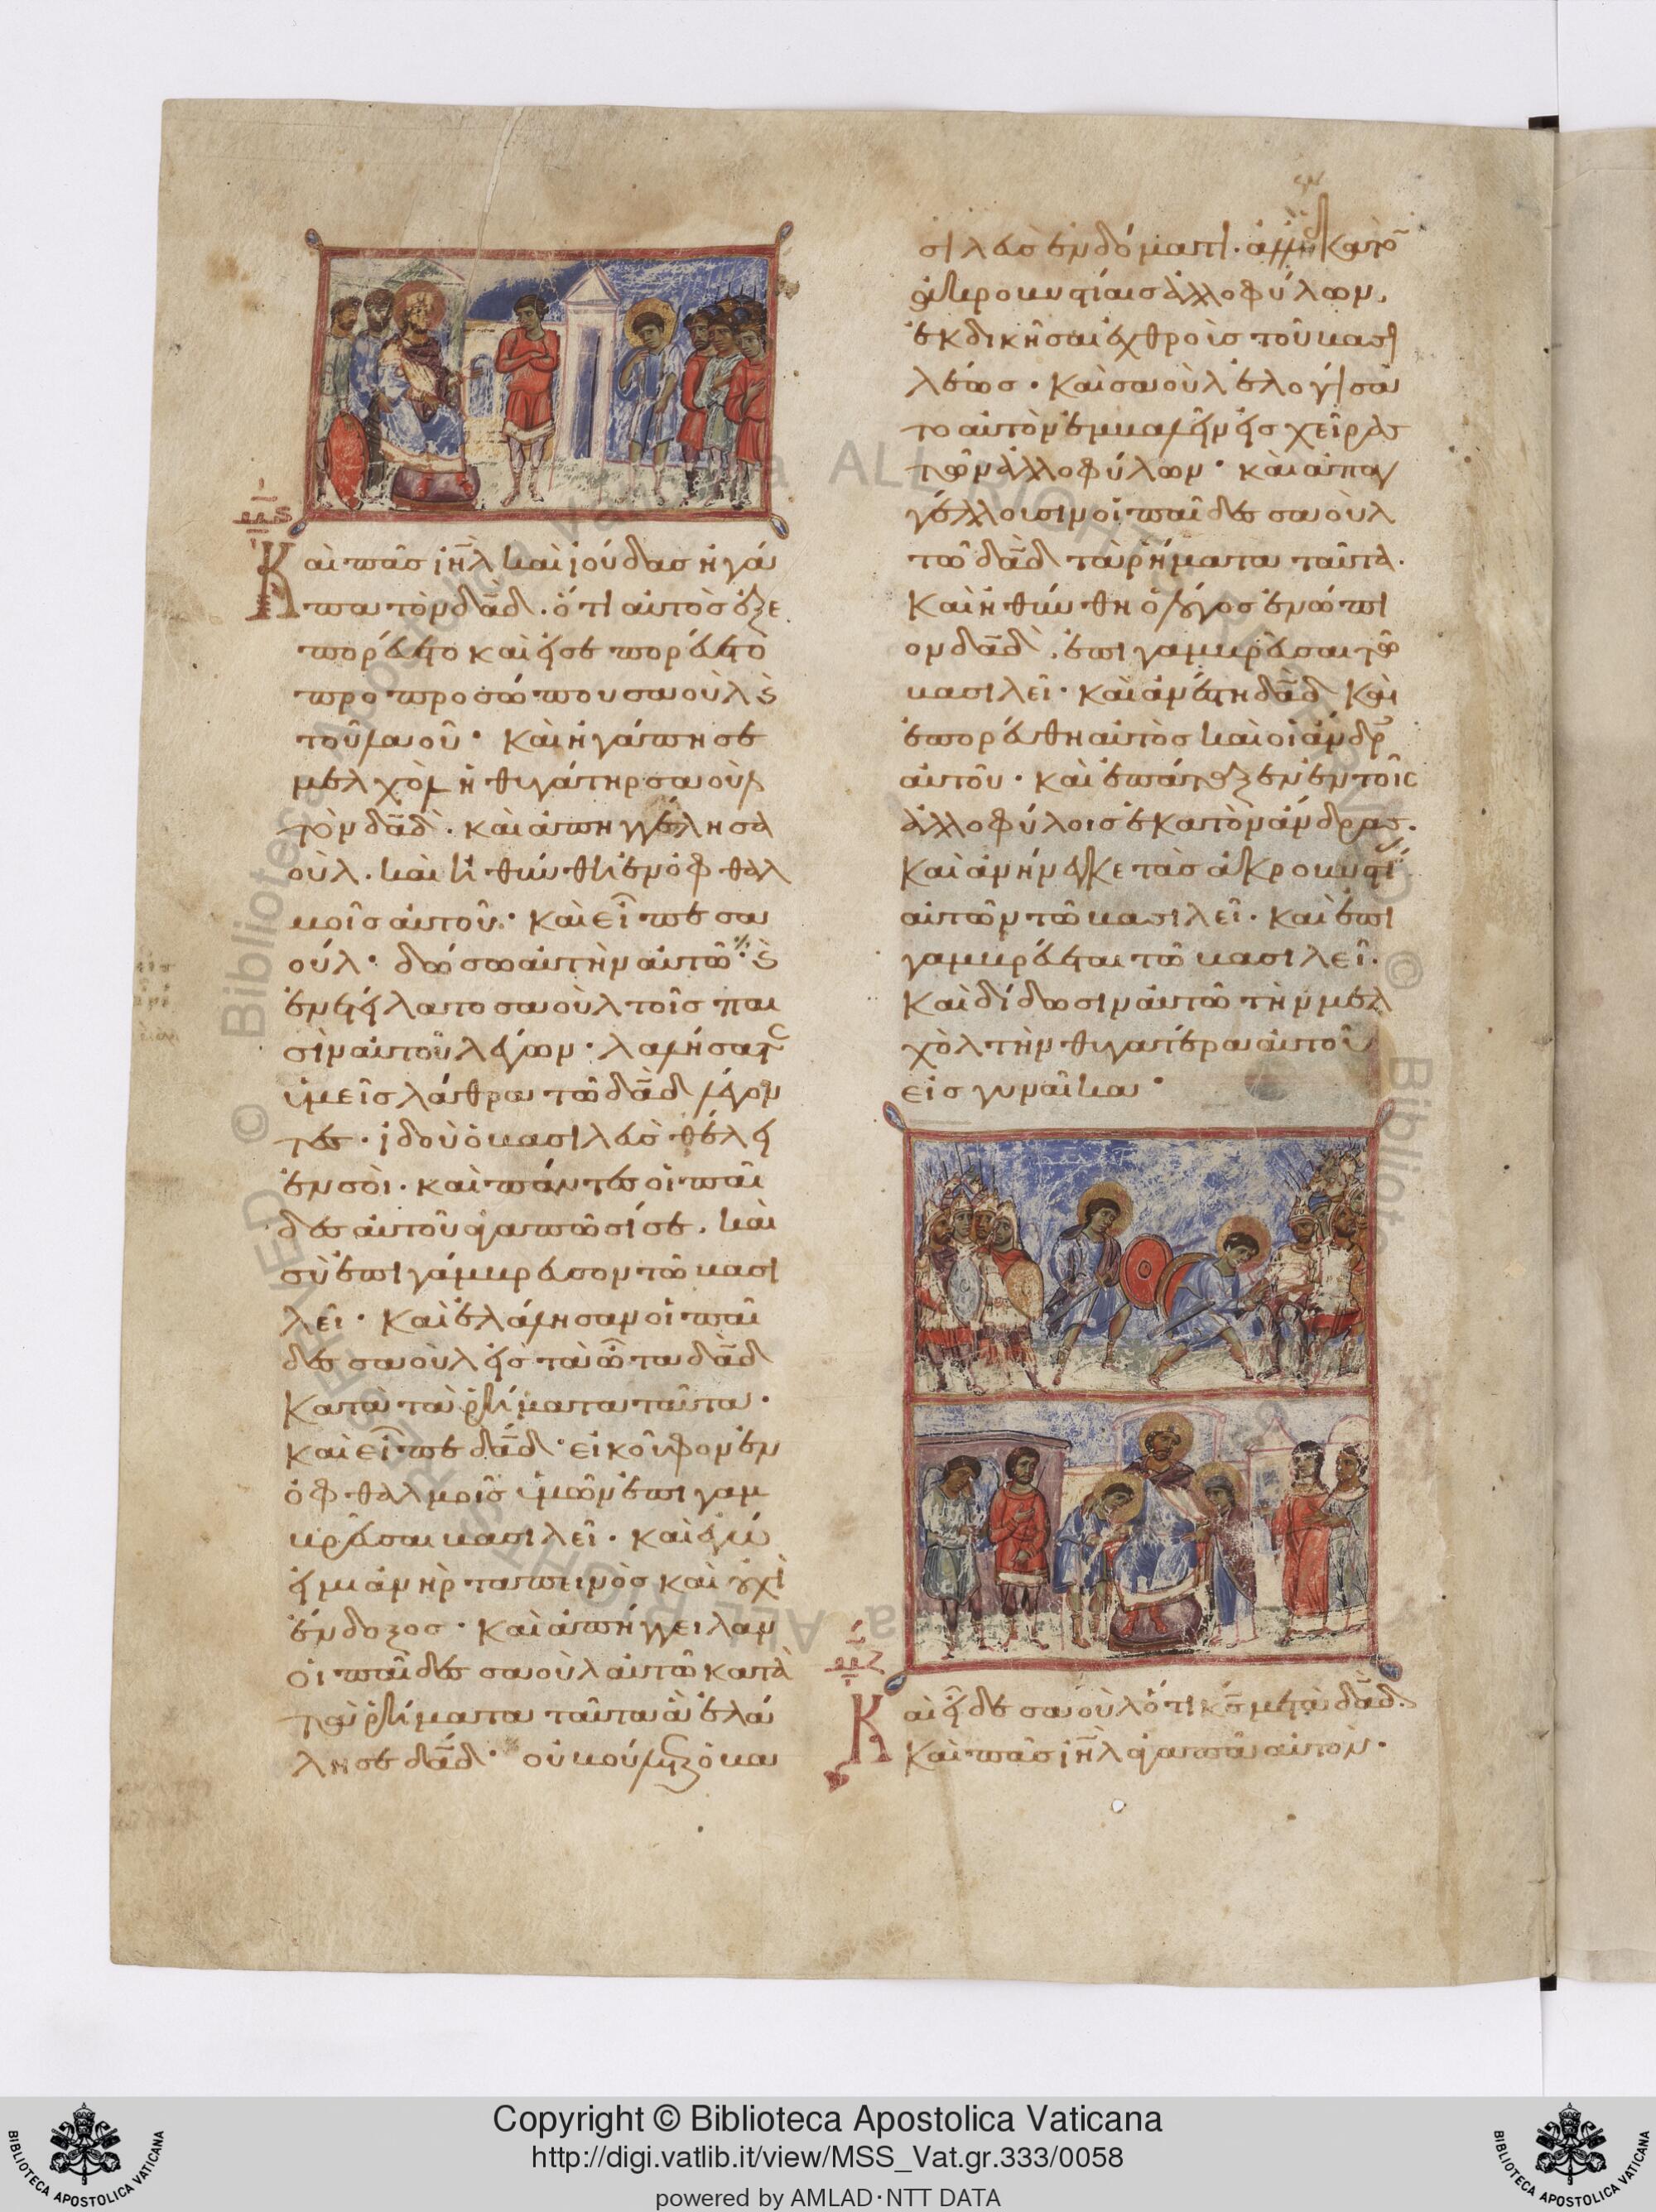 μς
Καὶ πᾶς ἰη̅λ καὶ ἰούδας ἠγά
πα τὸν δα̅δ. ὅτι αὐτὸς ἐξε
πορεύετο καὶ εἰσεπορεύετο
προ προσώπου σαοὺλ ϗ
τοῦ λαοῦ· Καὶ ἠγάπησε
μελχὸλ ἡ θυγάτηρ σαοὺλ
τὸν δα̅δ. καὶ ἀπηγγέλη σα
οὺλ. καὶ ηὐθύνθη ἐν ὀφθαλ
μοῖς αὐτοῦ. Καὶ εἶπε σα
ούλ· δώσω αὐτὴν αὐτῶ· ϗ
ἐνετείλατο σαοὺλ τοῖς παι
σὶν αὐτοῦ λέγων· λαλήσατε
ὑμεῖς λάθρα τῶ δα̅δ λέγον
τες· ἰδοὺ ὁ βασιλεὺς θέλει
ἐν σοὶ. καὶ πάντες οἱ παῖ
δες αὐτοῦ ἀγαπῶσί σε. καὶ
σὺ ἐπιγάμβρευσον τῶ βασι
λεῖ· Καὶ ἐλάλησαν οἱ παῖ
δες σαοὺλ εἰς τὰ ὦτα δα̅δ
Κατὰ τὰ ῥήματα ταῦτα·
Καὶ εἶπε δα̅δ· εἰ κοῦφον ἐν
ὀφθαλμοῖς ὑμῶν ἐπιγαμ
βρεῦσαι βασιλεῖ. Καὶ ἐγὼ
εἰμι ἀνὴρ ταπεινὸς καὶ οὐχὶ
ἔνδοξος· Καὶ ἀπήγγειλαν
οἱ παῖδες σαοὺλ αὐτῶ κατὰ
τὰ ῥήματα ταῦτα ἃ ἐλά
λησε δα̅δ· οὐ βούλεται ὁ βα
σιλεὺς ἐν δόματι. ἀλλ' ἢ ἑκατὸ
ἀκροβυστίαις ἀλλοφύλων,
ἐκδικῆσαι ἐχθροὺς τοῦ βασι
λέως· Καὶ σαοὺλ ἐλογίσα
το αὐτὸν ἐμβαλεῖν εἰς χεῖρας
τῶν ἀλλοφύλων· καὶ ἀπαγ
γέλλουσιν οἱ παῖδες σαοὺλ
τῶ δα̅δ τὰ ῥήματα ταῦτα.
Καὶ ηὐθύνθη ὁ λόγος ἐνώπι
ον δα̅δ, ἐπιγαμβρεῦσαι τῶ
βασιλεῖ· Καὶ ἀνέστη δα̅δ καὶ
ἐπορεύθη αὐτὸς καὶ οἱ ἄνδρες
αὐτοῦ· καὶ ἐπάταξεν ἐν τοῖς
ἀλλοφύλοις ἑκατὸν ἄνδρας.
Καὶ ἀνήνεγκε τὰς ἀκροβυστί
αὐτῶν τῶ βασιλεῖ. Καὶ ἐπι
γαμβρεύεται τῶ βασιλεῖ.
Καὶ δίδωσιν αὐτῶ τὴν μελ
χὸλ τὴν θυγατέρα αὐτοῦ
εἰς γυναῖκα·
μζ
Καὶ εἶδε σαοὺλ ὅτι κ̅ς μετὰ δα̅δ.
Καὶ πᾶς ἰη̅λ ἀγαπᾶ αὐτὸν·
© Biblioteca Apostolica Vaticana ALL RIGHTS RESERVED
Copyright © Biblioteca Apostolica Vaticana
http://digi.vatlib.it/view/MSS_Vat.gr.333/0058
powered by AMLAD·NTT DATA
BIBLIOTECA APOSTOLICA VATICANA
BIBLIOTECA APOSTOLICA VATICANA